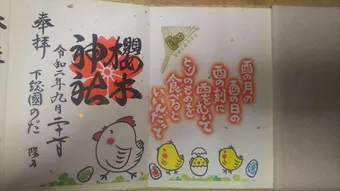 酉の月の
酉の日の
酉の刻に
酉をむいて
とりのものを
食べると
いいんだって
櫻木
神社
奉拝
令和二年九月
下総國のだ